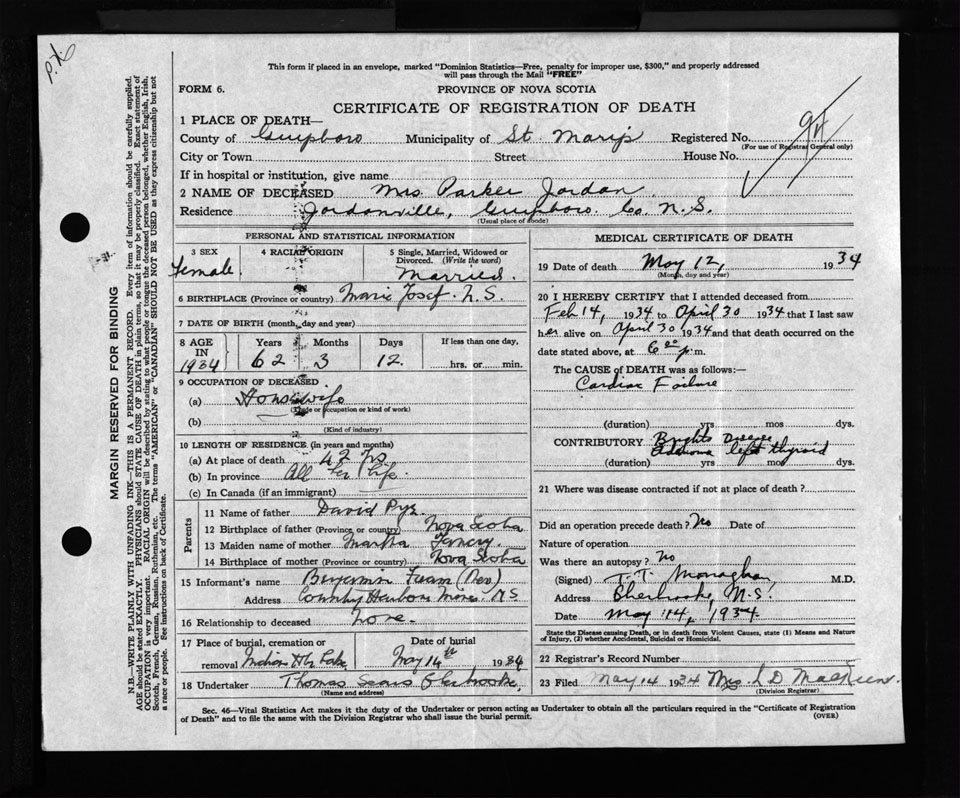 P.X.
This form if placed in an envelope, marked "Dominion Statistics—Free, penalty for improper use, $300," and properly addressed
will pass through the Mail "FREE"
FORM 6.
PROVINCE OF NOVA SCOTIA
CERTIFICATE OF REGISTRATION OF DEATH
1 PLACE OF DEATH—
County of Guysboro Municipality of St. Mary's Registered No. 94
(For use of Registrar General only)
City or Town Street House No.
If in hospital or institution, give name
2 NAME OF DECEASED Mrs. Parker Jordan
Residence Jordanville, Guysboro. Co. N.S.
(Usual place of abode)
PERSONAL AND STATISTICAL INFORMATION
3 SEX Female.
4 RACIAL ORIGIN
5 Single, Married, Widowed or
Divorced. (Write the word)
Married.
6 BIRTHPLACE (Province or country) Marie Josef. N.S.
7 DATE OF BIRTH (month, day and year)
8 AGE IN 1934
Years 62
Months 3
Days 12.
If less than one day,
hrs. or min.
9 OCCUPATION OF DECEASED
(a) Housewife
(Trade or occupation or kind of work)
(b)
(Kind of industry)
10 LENGTH OF RESIDENCE (in years and months)
(a) At place of death 42 yrs
(b) In province All her life
(c) In Canada (if an immigrant)
Parents
11 Name of father David Pye.
12 Birthplace of father (Province or country) Nova Scotia
13 Maiden name of mother Martha
14 Birthplace of mother (Province or country) Nova Scotia
15 Informant's name Benjamin (Rev)
Address Country Harbour Mines. N.S
16 Relationship to deceased None.
17 Place of burial, cremation or
removal Indian Hr Lake
Date of burial
May 14th 1934
18 Undertaker Thomas Sears Sherbrooke,
(Name and address)
MEDICAL CERTIFICATE OF DEATH
19 Date of death May 12, 1934
(Month, day and year)
20 I HEREBY CERTIFY that I attended deceased from
Feb 14, 1934 to April 30 1934 that I last saw
her alive on April 30 1934 and that death occurred on the
date stated above, at 6 00 p.m.
The CAUSE of DEATH was as follows:—
Cardiac Failure
(duration) yrs mos dys.
CONTRIBUTORY Brights Disease
Adenoma left thyroid
(duration) yrs mos dys.
21 Where was disease contracted if not at place of death?
Did an operation precede death? No Date of
Nature of operation
Was there an autopsy? No
(Signed) T.T. Monaghan, M.D.
Address Sherbrooke, N.S.
Date May 14, 1934
State the Disease causing Death, or in death from Violent Causes, state (1) Means and Nature
of Injury, (2) whether Accidental, Suicidal or Homicidal.
22 Registrar's Record Number
23 Filed May 14 1934 Mrs. L D MacKeen.
(Division Registrar)
Sec. 46—Vital Statistics Act makes it the duty of the Undertaker or person acting as Undertaker to obtain all the particulars required in the "Certificate of Registration
of Death" and to file the same with the Division Registrar who shall issue the burial permit.
(OVER)
MARGIN RESERVED FOR BINDING
N.B.—WRITE PLAINLY WITH UNFADING INK—THIS IS A PERMANENT RECORD. Every item of information should be carefully supplied.
AGE should be stated EXACTLY. PHYSICIANS should STATE CAUSE OF DEATH in plain terms, so that it may be properly classified. Exact statement of
OCCUPATION is very important. RACIAL ORIGIN will be described by stating to what people or tongue the deceased person belonged, whether English, Irish,
Scotch, French, German, Russian, Ruthenian, etc. The terms "AMERICAN" or "CANADIAN" SHOULD NOT BE USED as they express citizenship but not
a race or people. See instructions on back of Certificate.